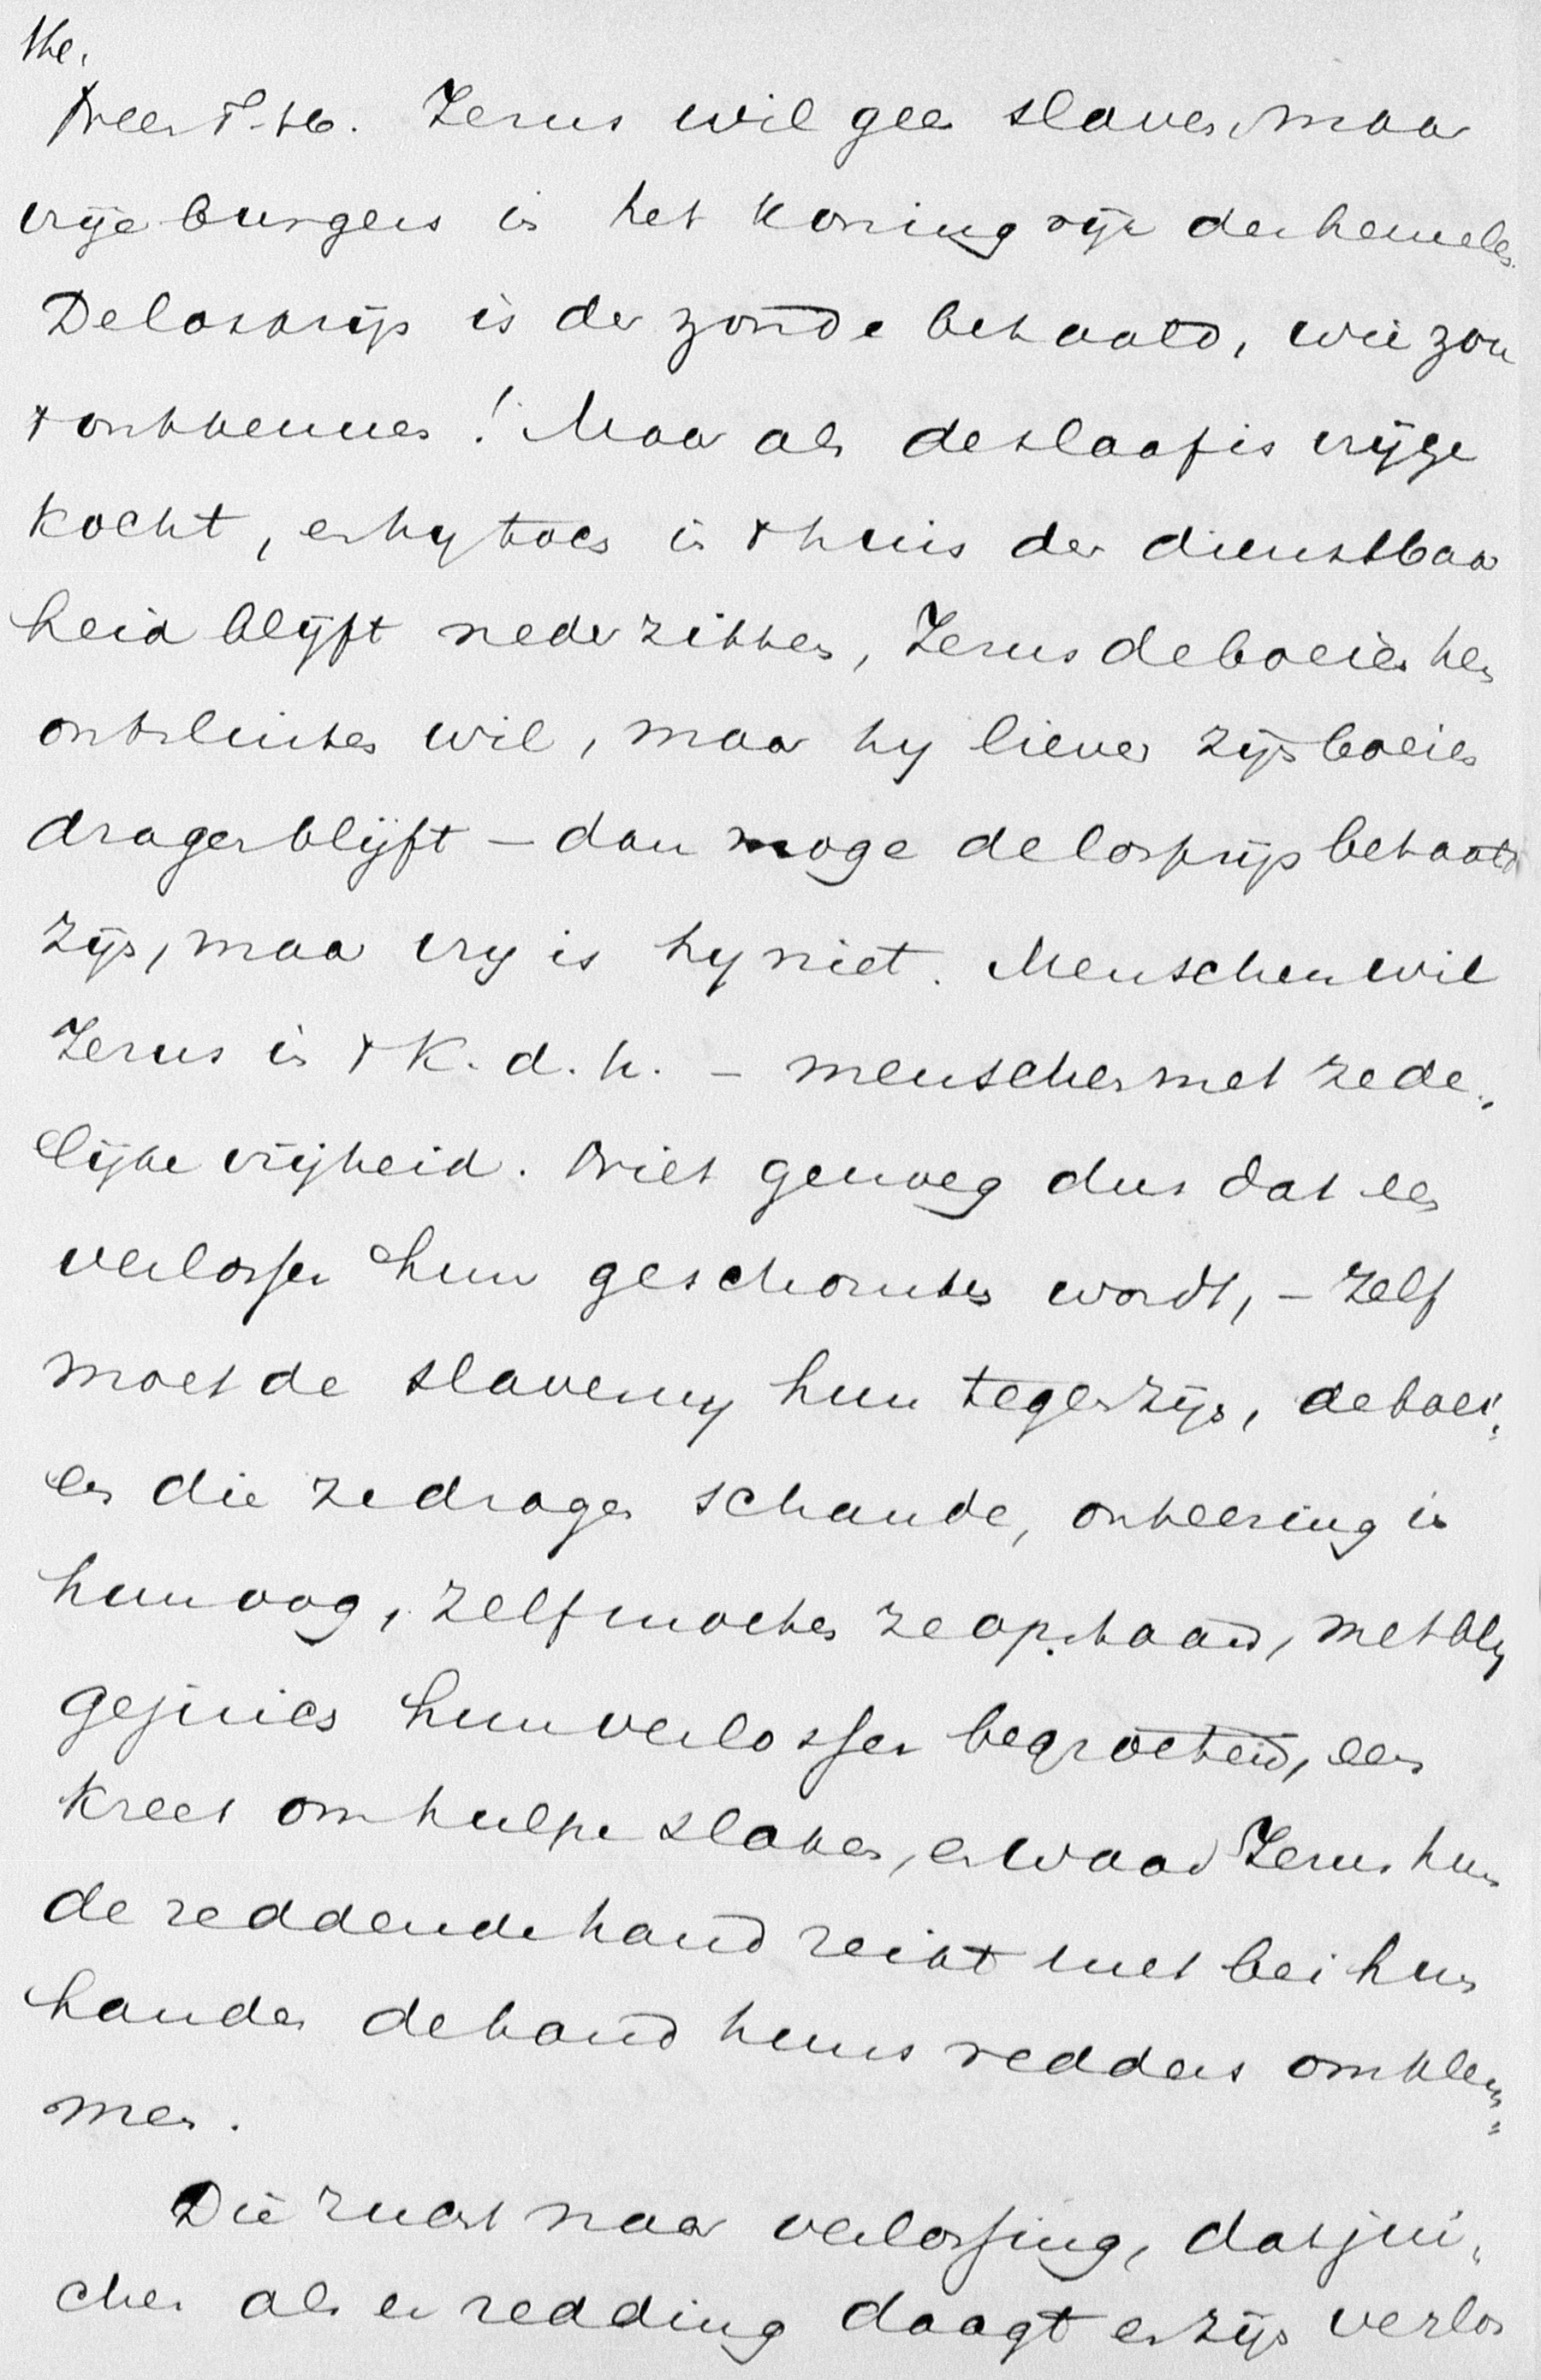 the.
Neen T. H. Jezus wil geen slaven, maar
vrije burgers in het koningrijk der hemelen.
De losprijs is der zonde betaald, wie zou
't ontkennen! Maar als de slaaf is vrijge
kocht, en hy toch in 't huis der dienstbaar
heid blijft nederzitten, Jezus de boeien hem
ontsluiten wil, maar hy liever zijn boeien
dragen blijft – dan moge de losprijs betaald
zijn, maar vry is hy niet. Menschen wil
Jezus in 't K. d. h. – menschen met zede„
lijke vrijheid. Niet genoeg dus dat een
verlosser hun geschonken wordt, – zelf
moet de slaverny hun tegen zijn, de boei„
en die ze dragen schande, onteering in
hun oog, zelf moeten ze opstaand, met bly
gejuich hun verlosser begroetend, een
kreet om hulpe slaken, en waar Jezus hun
de reddende hand reikt met bei hun
handen de hand huns redders omklem„
men.
Die zucht naar verlossing, dat jui„
chen als er redding daagt en zijn verlos